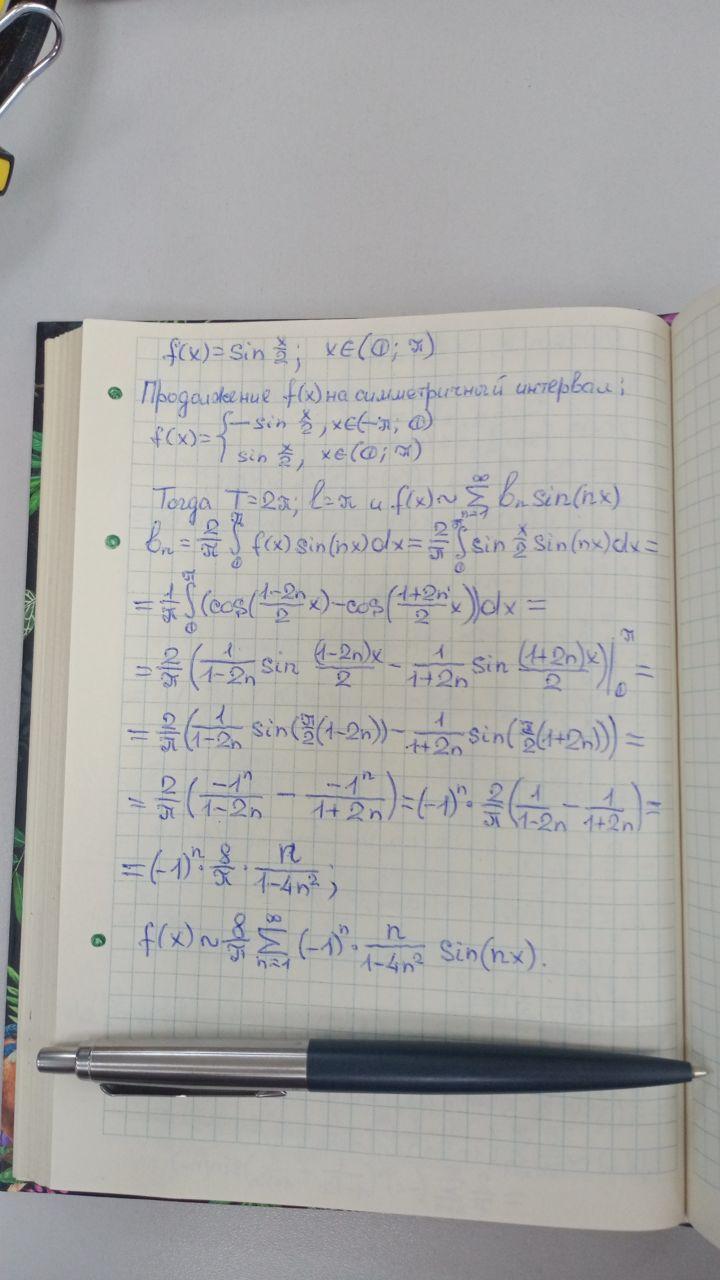 f(x)=sin x/2; x∈(0; π)
Продолжение f(x) на симметричный интервал:
f(x)={-sin x/2, x∈(-π; 0)
sin x/2, x∈(0; π)
Тогда T=2π; l=π и f(x)~∑_{n=1}^{∞} bₙ sin(nx)
bₙ = 2/π ∫₀^π f(x) sin(nx)dx = 2/π ∫₀^π sin x/2 sin(nx)dx =
= 1/π ∫₀^π (cos((1-2n)/2 x) - cos((1+2n)/2 x))dx =
= 2/π (1/(1-2n) sin (1-2n)x/2 - 1/(1+2n) sin (1+2n)x/2)|₀^π =
= 2/π (1/(1-2n) sin(π/2(1-2n)) - 1/(1+2n) sin(π/2(1+2n))) =
= 2/π (-1ⁿ/(1-2n) - -1ⁿ/(1+2n)) = (-1)ⁿ · 2/π (1/(1-2n) - 1/(1+2n)) =
= (-1)ⁿ · 8/π · n/(1-4n²);
f(x) ~ 8/π ∑_{n=1}^{∞} (-1)ⁿ · n/(1-4n²) sin(nx).